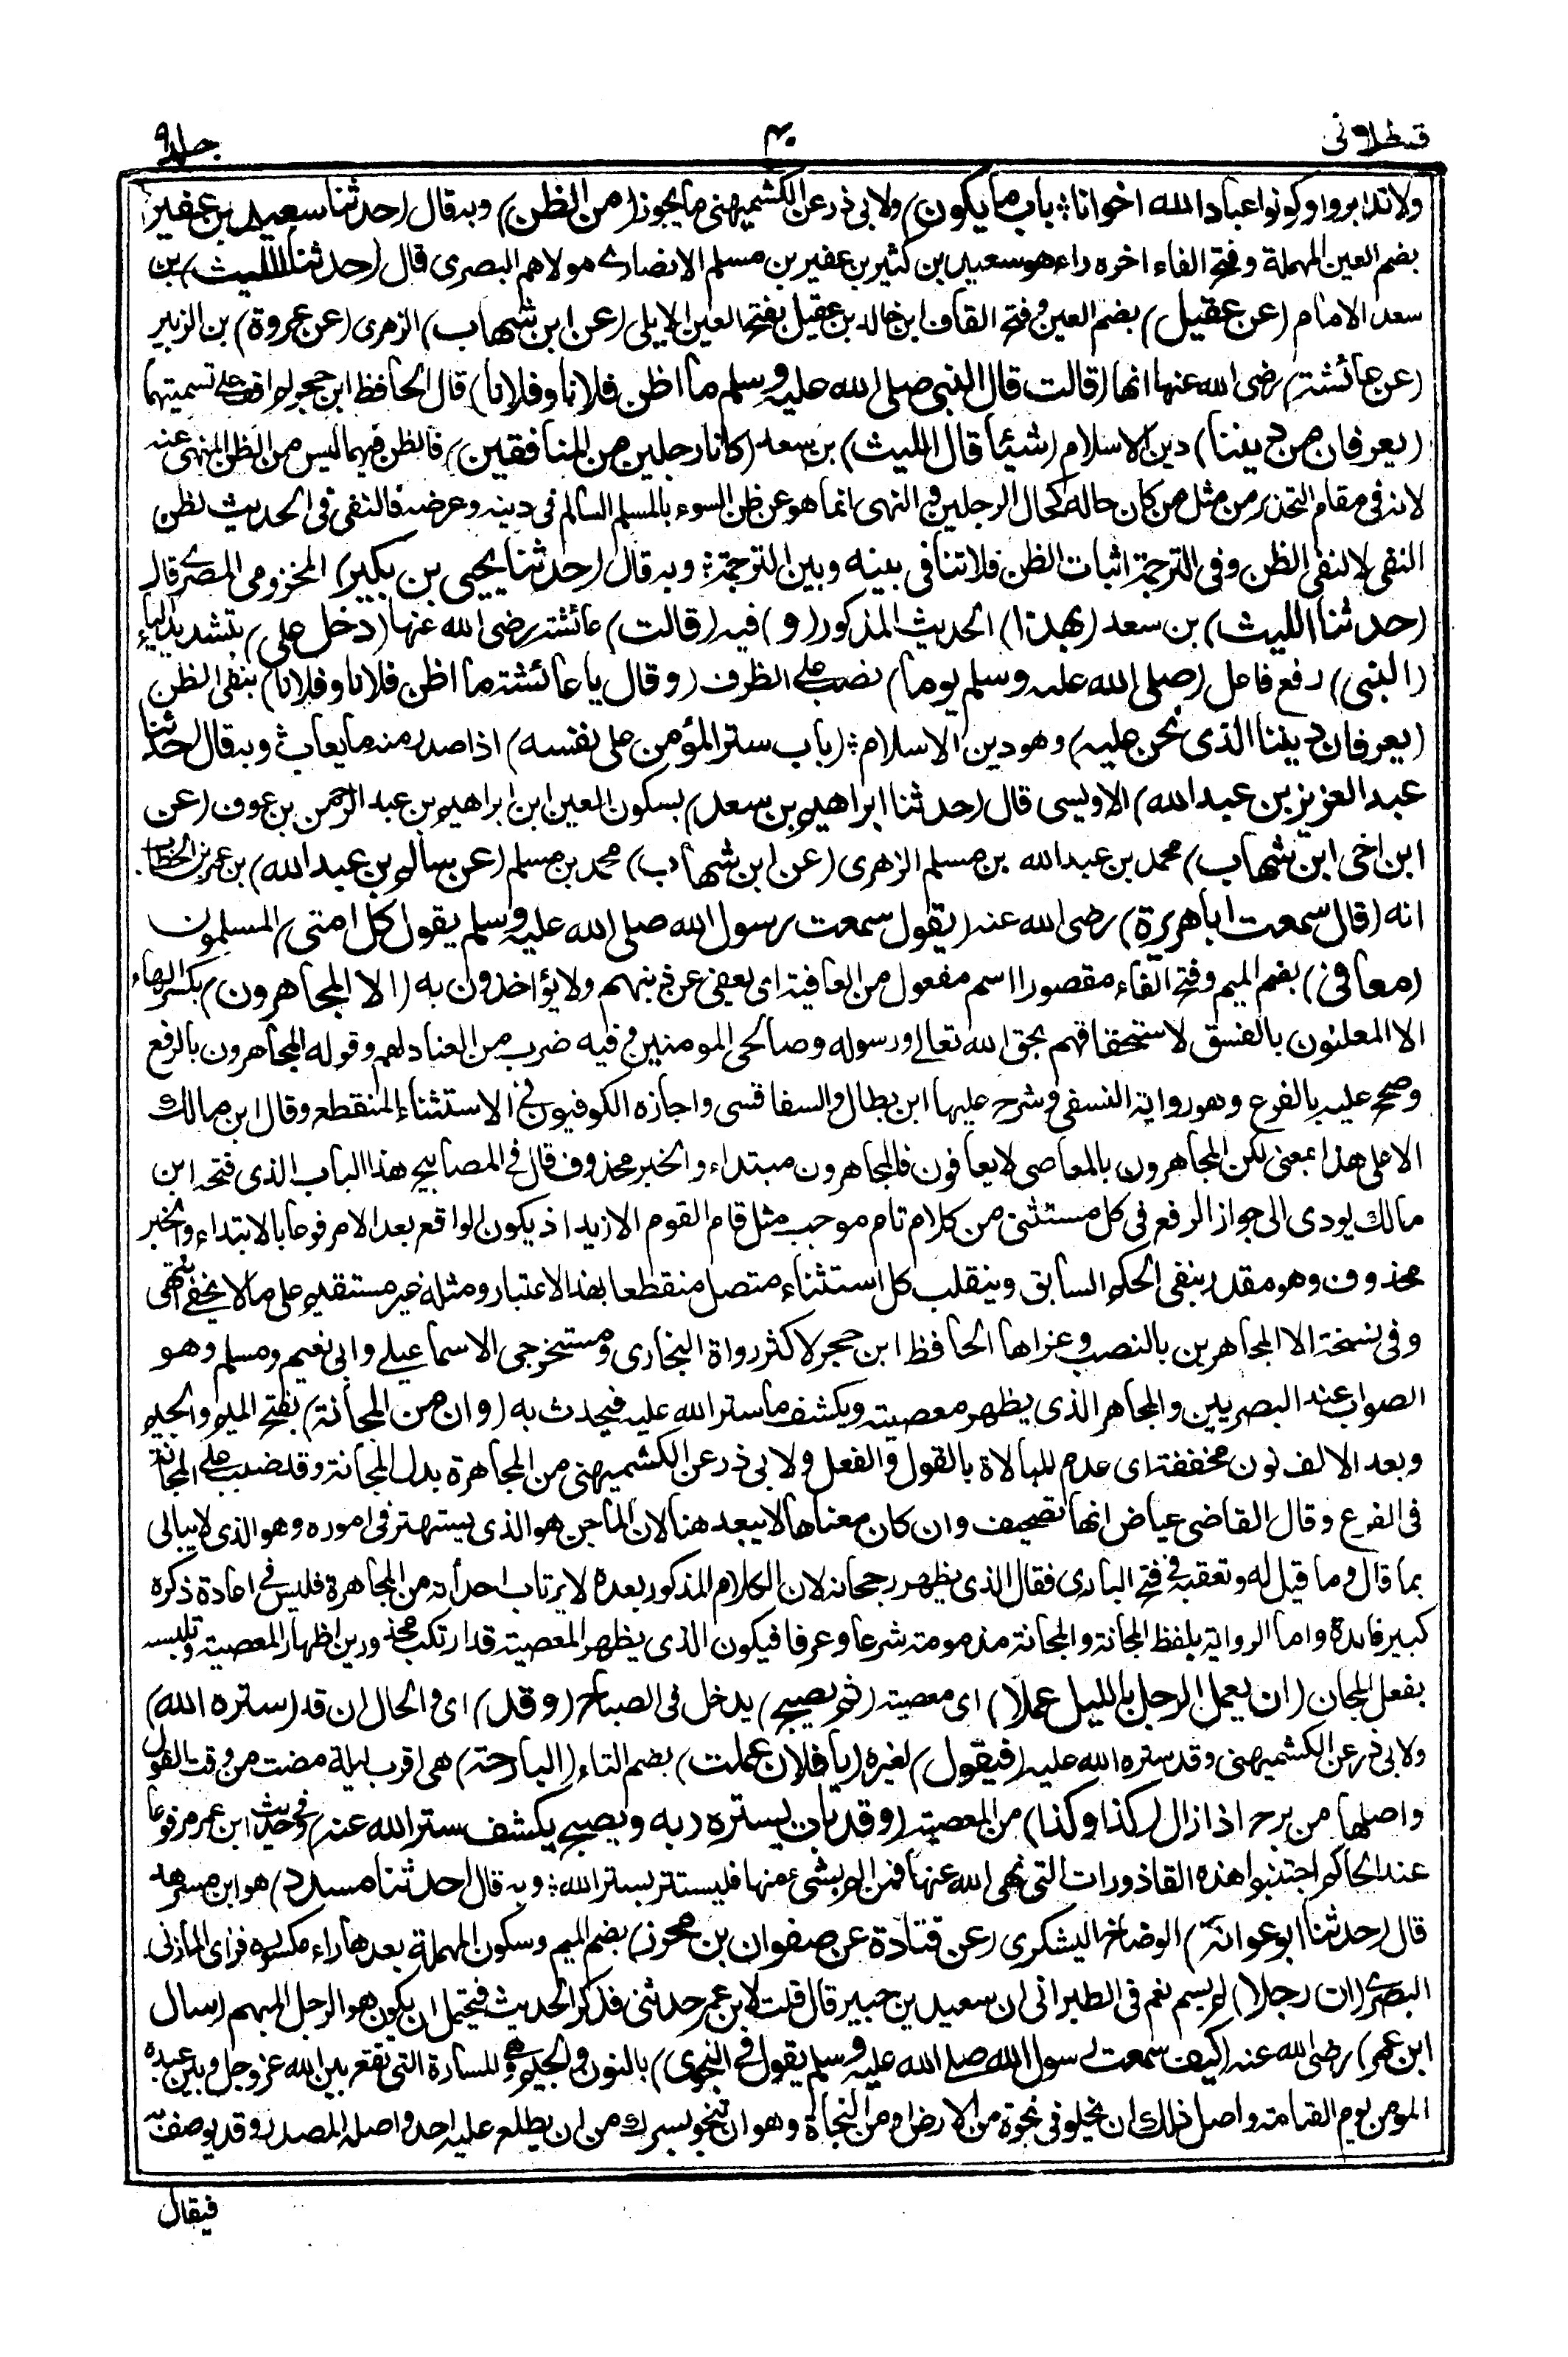 قسطلانى
٤٠
جلد٩
ولا تدابروا وكونوا عباد الله اخوانا ؛ باب ما يكون) ولابى ذر عن الكشميهنى ما يجوز (من الظن) وبه قال (حدثنا سعيد بن عفير)
بضم العين المهملة وفتح الفاء اخره راء هو سعيد بن كثير بن عفير بن مسلم الانصارى مولاهم البصرى قال (حدثنا الليث) بن
سعد الامام (عن عقيل) بضم العين وفتح القاف ابن خالد بن عقيل بفتح العين الايلى (عن ابن شهاب) الزهرى (عن عروة) بن الزبير
(عن عائشة) رضى الله عنها انها (قالت قال النبى صلى الله عليه وسلم ما اظن فلانا وفلانا) قال الحافظ ابن حجر لم اقف على تسميتهما
(يعرفان من ديننا) دين الاسلام (شيئا قال الليث) بن سعد (كانا رجلين من المنافقين) فالظن فيهما ليس من الظن المنهى عنه
لانه فى مقام التحذير من مثل من كان حاله كحال الرجلين والنهى انما هو عن ظن السوء بالمسلم السالم فى دينه وعرضه فالنفى فى الحديث لظن
النفى لا لنفى الظن وفى الترجمة اثبات الظن فلا تنافى بينه وبين الترجمة ؛ وبه قال (حدثنا يحيى بن بكير) المخزومى المصرى قال
(حدثنا الليث) بن سعد (بهذا) الحديث المذكور (و) فيه (قالت) عائشة رضى الله عنها (دخل على) بتشديد الياء
(النبى) رفع فاعل (صلى الله عليه وسلم يوما) نصب على الظرف (وقال يا عائشة ما اظن فلانا وفلانا) بنفى الظن
(يعرفان ديننا الذى نحن عليه) وهو دين الاسلام ؛ (باب ستر المؤمن على نفسه) اذا صدر منه ما يعاب وبه قال (حدثنا
عبد العزيز بن عبد الله) الاويسى قال (حدثنا ابراهيم بن سعد) بسكون العين ابن ابراهيم بن عبد الرحمن بن عوف (عن
ابن اخى ابن شهاب) محمد بن عبد الله بن مسلم الزهرى (عن ابن شهاب) محمد بن مسلم (عن سالم بن عبد الله) بن عمر بن الخطاب
انه (قال سمعت ابا هريرة) رضى الله عنه (يقول سمعت رسول الله صلى الله عليه وسلم يقول كل امتى) المسلمون
(معافى) بضم الميم وفتح الفاء مقصورا اسم مفعول من العافية اى يعفى عن ذنبهم ولا يؤاخذون به (الا المجاهرون) بكسر الهاء
الا المعلنون بالفسق لاستخفافهم بحق الله تعالى ورسوله وصالحى المومنين وفيه ضرب من العناد لهم وقوله المجاهرون بالرفع
وصحح عليه بالفرع وهو رواية النسفى وشرح عليها ابن بطال والسفاقسى واجازه الكوفيون فى الاستثناء المنقطع وقال ابن مالك
الا على هذا بمعنى لكن المجاهرون بالمعاصى لا يعافون فالمجاهرون مبتداء والخبر محذوف قال فى المصابيح هذا الباب الذى فتحه ابن
مالك يودى الى جواز الرفع فى كل مستثنى من كلام تام موجب مثل قام القوم الا زيد اذ يكون الواقع بعد الا مرفوعا بالابتداء والخبر
محذوف وهو مقدر بنفى الحكم السابق وينقلب كل استثناء متصل منقطعا بهذا الاعتبار ومثله غير مستقيم على ما لا يخفى انتهى
وفى نسخة الا المجاهرين بالنصب وعزاها الحافظ ابن حجر لاكثر رواة البخارى ومستخرجى الاسماعيلى وابى نعيم ومسلم وهو
الصواب عند البصريين والمجاهر الذى يظهر معصيته ويكشف ما ستر الله عليه فيحدث به (وان من المجانة) بفتح الميم والجيم
وبعد الالف نون مخففة اى عدم المبالاة بالقول والفعل ولابى ذر عن الكشميهنى من المجاهرة بدل المجانة وقد ضبب على المجانة
فى الفرع وقال القاضى عياض انها تصحيف وان كان معناها لا يبعد هنا لان الماجن هو الذى يستهتر فى اموره وهو الذى لا يبالى
بما قال وما قيل له وتعقبه فى فتح البارى فقال الذى يظهر رجحانه لان الكلام المذكور بعده لا يرتاب احد أنه من المجاهرة فليس فى اعادة ذكره
كبير فائدة واما الرواية بلفظ المجانة والمجانة مذمومة شرعا وعرفا فيكون الذى يظهر المعصية قد ارتكب محذورين اظهار المعصية وتلبسه
بفعل المجان (ان يعمل الرجل بالليل عملا) اى معصية (ثم يصبح) يدخل فى الصباح (وقد) اى والحال ان قد (ستره الله)
ولابى ذر عن الكشميهنى وقد ستره الله عليه (فيقول) لغيره (يا فلان عملت) بضم التاء (البارحة) هى اقرب ليلة مضت من وقت القول
واصلها من برح اذا زال (كذا وكذا) من المعصية (وقد بات يستره ربه ويصبح يكشف ستر الله عنه) وفى حديث ابن عمر مرفوعا
عند الحاكم اجتنبوا هذه القاذورات التى نهى الله عنها فمن الم بشىء منها فليستتر بستر الله ؛ وبه قال (حدثنا مسدد) هو ابن مسرهد
قال (حدثنا ابو عوانة) الوضاح اليشكرى (عن قتادة عن صفوان بن محرز) بضم الميم وسكون المهملة بعدها راء مكسورة فزاى المازنى
البصرى (ان رجلا) لم يسم نعم فى الطبرانى ان سعيد بن جبير قال قلت لابن عمر حدثنى فذكر الحديث فيحتمل ان يكون هو الرجل المبهم (سال
ابن عمر) رضى الله عنه (كيف سمعت رسول الله صلى الله عليه وسلم يقول فى النجوى) بالنون والجيم وهى المسارة التى تقع بين الله عز وجل وبين عبده
المومن يوم القيامة واصل ذلك ان يخلو فى نجوة من الارض او من النجاة وهو ان تنجو بسرك من ان يطلع عليه احد واصله المصدر وقد يوصف به
فيقال